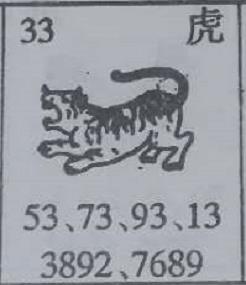 33 虎
53、73、93、13
3892、7689